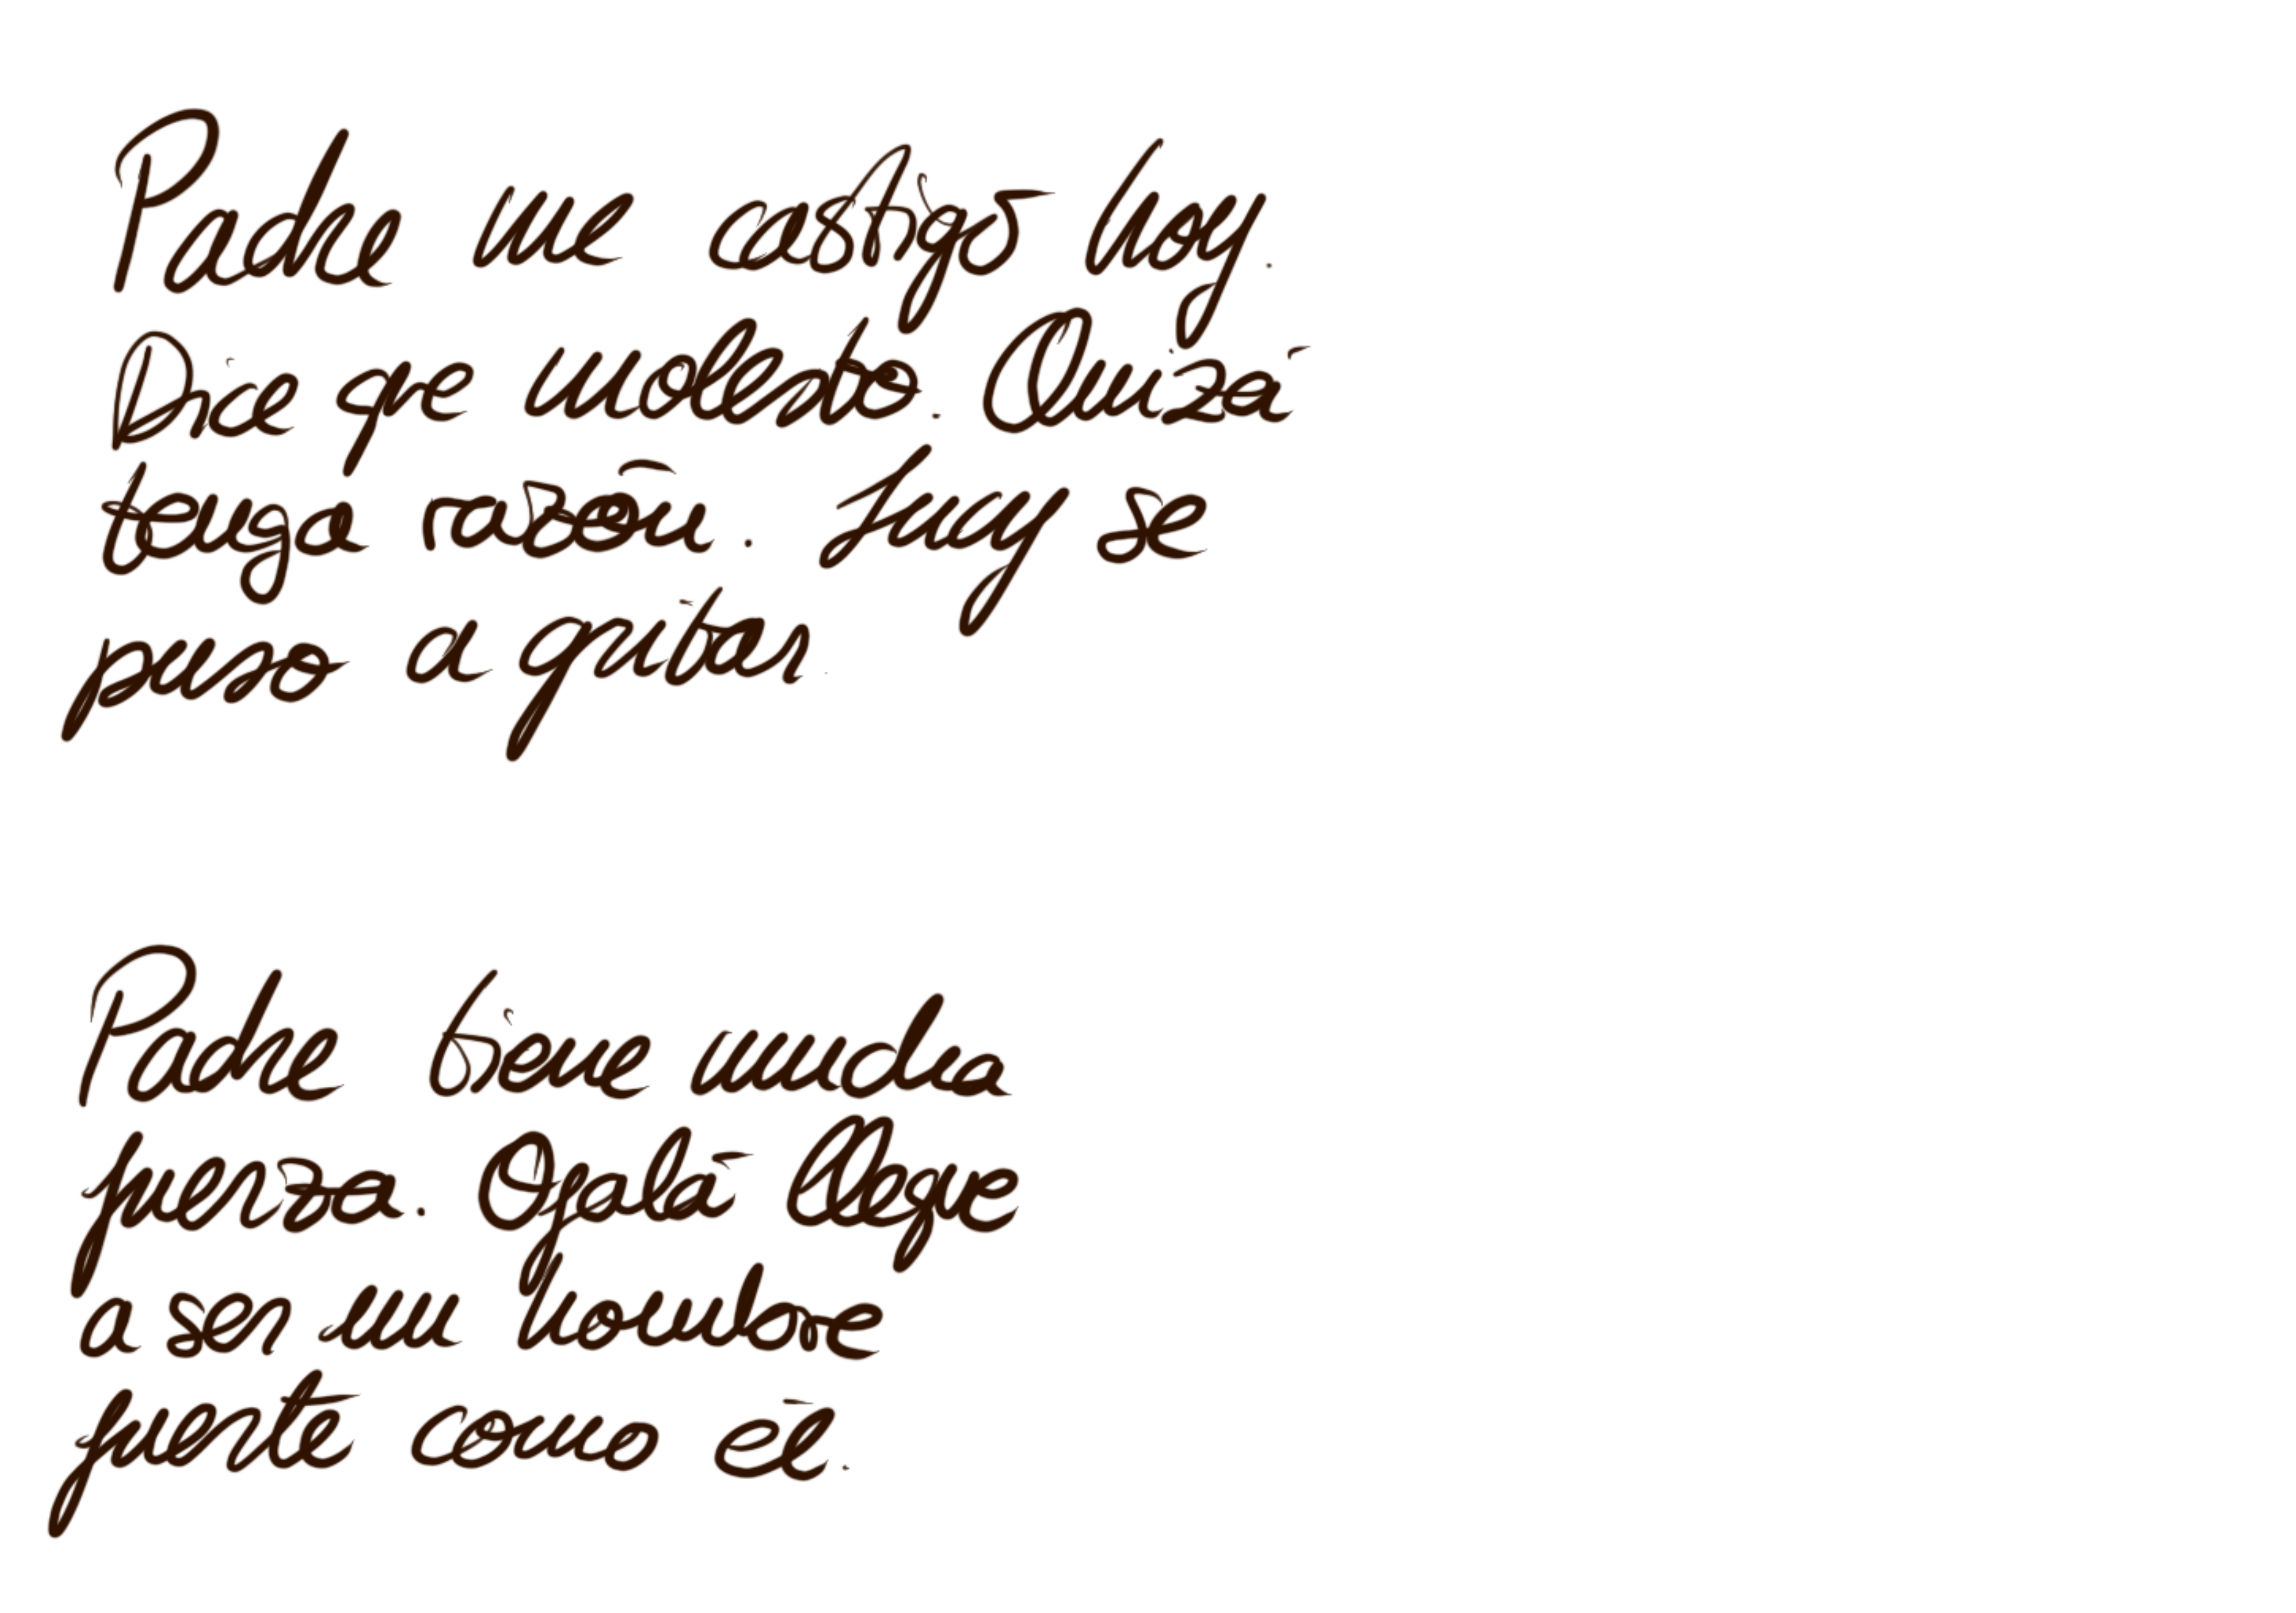 Padre me castigó hoy.
Dice que molesto. Quizá
tenga razón. Lucy se
puso a gritar.
Padre tiene mucha
fuerza. Ojalá llegue
a ser un hombre
fuerte como él.